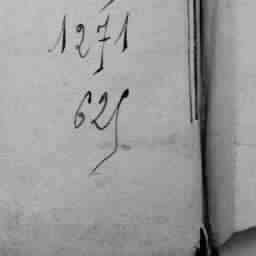 1271
625